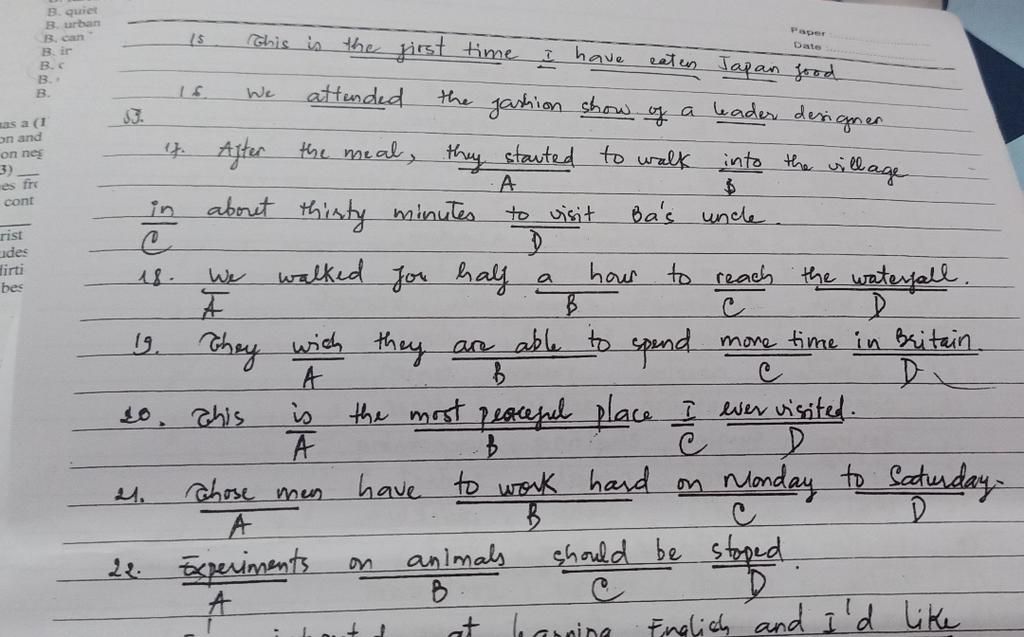 B. quiet
B. urban
B. can
B. ir
B. c
B.
B.
as a (1
on and
on neg
3)
es fr
cont
rist
udes
lirti
bes
Paper
Date
15 This is the first time I have eaten Japan food
16. We attended the fashion show of a leader designer
17. After the meal, they started to walk into the village
A B
in about thirty minutes to visit Ba's uncle
C D
18. We walked for half a hour to reach the waterfall.
A B C D
19. They wich they are able to spend more time in Britain
A B C D
20. This is the most peaceful place I ever visited.
A B C D
21. Those men have to work hard on Monday to Saturday.
A B C D
22. Experiments on animals should be stoped.
A B C D
at learning English and I'd like